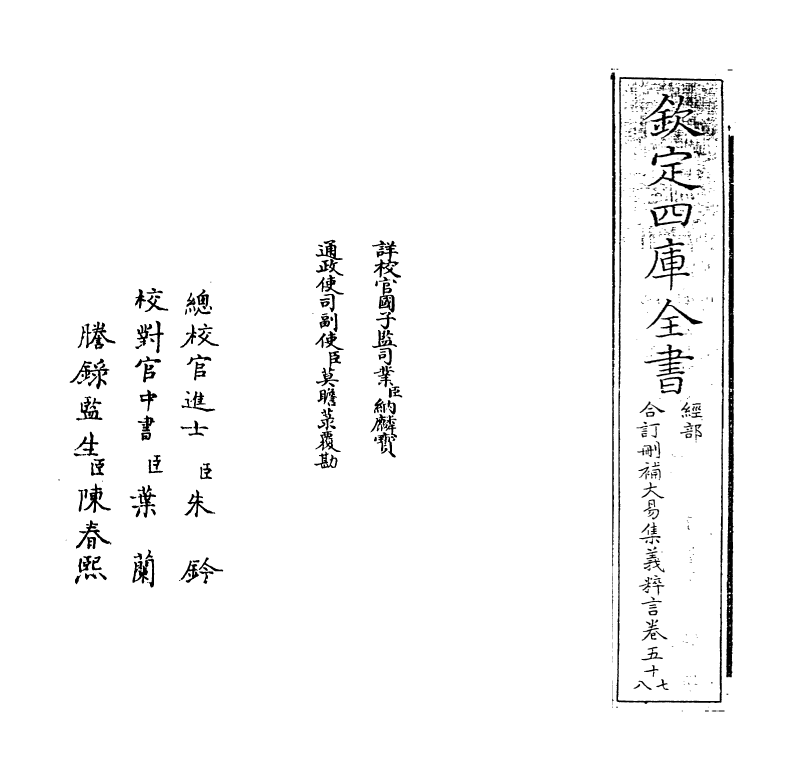 欽定四庫全書
經部
合訂刪補大易集義粹言卷五十七八
詳校官國子監司業臣納麟寶
通政使司副使臣莫瞻菉覆勘
總校官進士臣朱鈐
校對官中書臣葉蘭
謄錄監生臣陳春熙